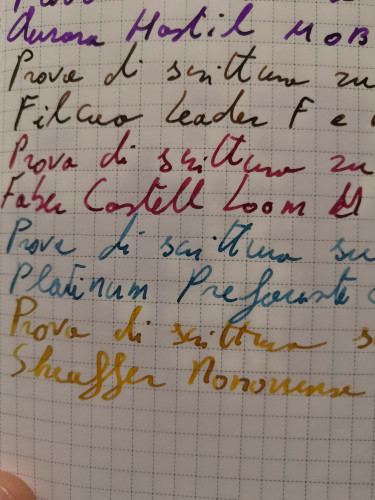 Aurora Hastil MOB
Prova di scrittura su
Filcao Leader F e
Prova di scrittura su
Faber Castell Loom M
Prova di scrittura su
Platinum Prefounte
Prova di scrittura s
Sheaffer Nononsense